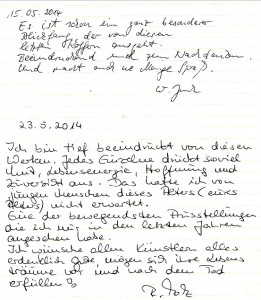 15.05.2014
Es ist schon ein ganz besonderer
Blickfang der von diesen
letzten Koffern ausgeht.
Beeindruckend und zum Nachdenken.
Und macht auch ne Menge Spaß.
23.5.2014
Ich bin tief beeindruckt von diesen
Werken. Jedes Einzelne drückt soviel
Mut, Lebensenergie, Hoffnung und
Zuversicht aus. Das hätte ich von
jungen Menschen dieses Alters (eures
Alters) nicht erwartet.
Eine der bewegendsten Ausstellungen
die ich mir in den letzten Jahren
angesehen habe.
Ich wünsche allen Künstlern alles
erdenklich Gute, mögen sich ihre Lebens
träume vor und nach dem Tod
erfüllen